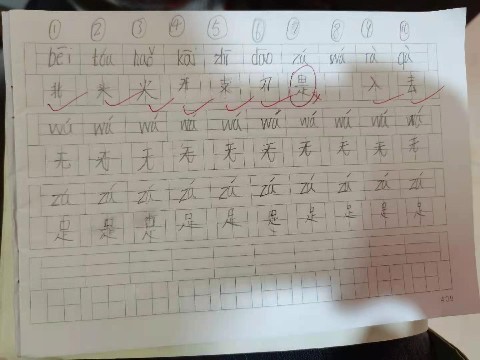 ① ② ③ ④ ⑤ ⑥ ⑦ ⑧ ⑨ ⑩
běi tóu huǒ kāi zhī dāo zú wú rù qù
北 头 火 开 支 刀 足 入 去
wú wú wú wú wú wú wú wú wú wú
无 无 无 无 无 无 无 无 无 无
zú zú zú zú zú zú zú zú zú zú
足 足 足 足 足 足 足 足 足 足